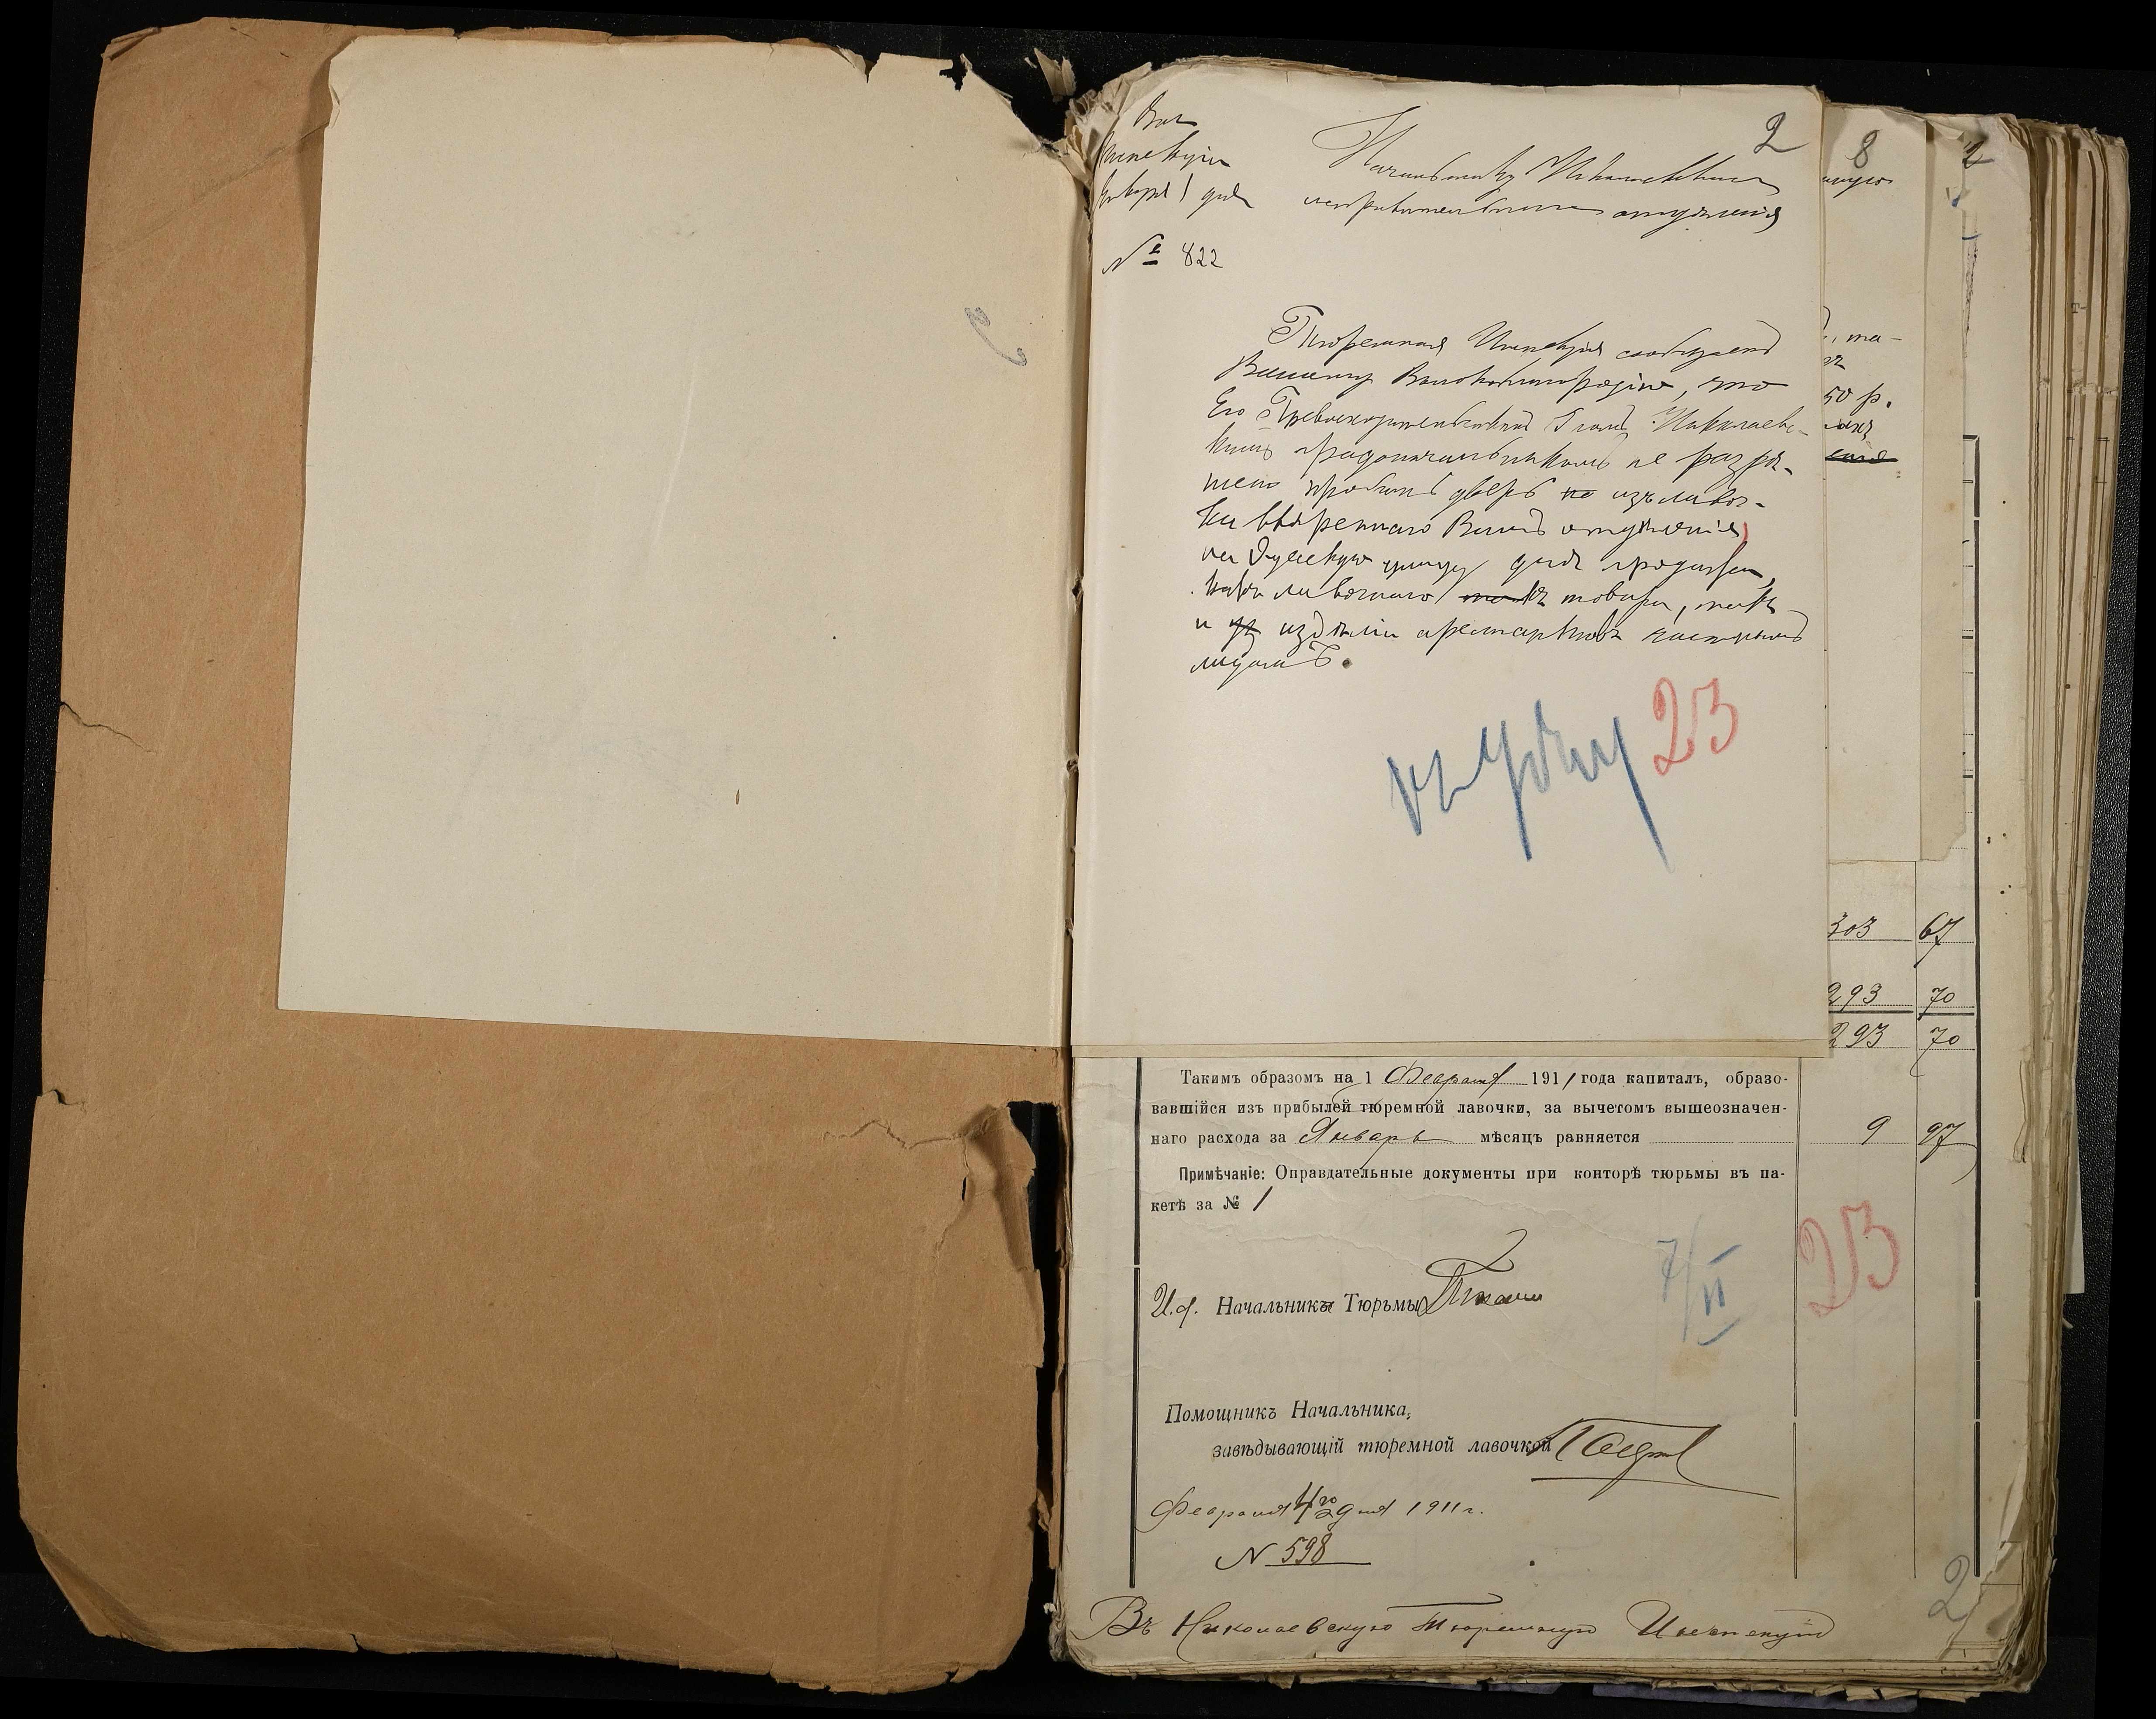 2
Января 1 дня
№ 822
Начальнику Николаевскаго
исправительнаго отдѣленія
Тюремная Инспекція сообщаетъ
Вашему Высокоблагородію, что
Его Превосходительствомъ Г. Николаевс-
кимъ Градоначальникомъ не разрѣ-
шено пробить дверь изъ лавоч-
ки ввѣреннаго Вамъ отдѣленія
на улицу для продажи,
какъ лавочнаго товара, такъ
и издѣлій арестантовъ
людямъ.
23
8
2
, та-
50 р.
303 67
293 70
293 70
Такимъ образомъ на 1 Февраля 1911 года капиталъ, образо-
вавшійся изъ прибылей тюремной лавочки, за вычетомъ вышеозначен-
наго расхода за Январь мѣсяцъ равняется 9 97
Примѣчаніе: Оправдательные документы при конторѣ тюрьмы въ па-
кетѣ за № 1
23
7/II
И.д. Начальника Тюрьмы
Помощникъ Начальника,
завѣдывающій тюремной лавочкой
Февраля 4го дня 1911 г.
N 598
2
Въ Николаевскую Тюремную Инспекцію